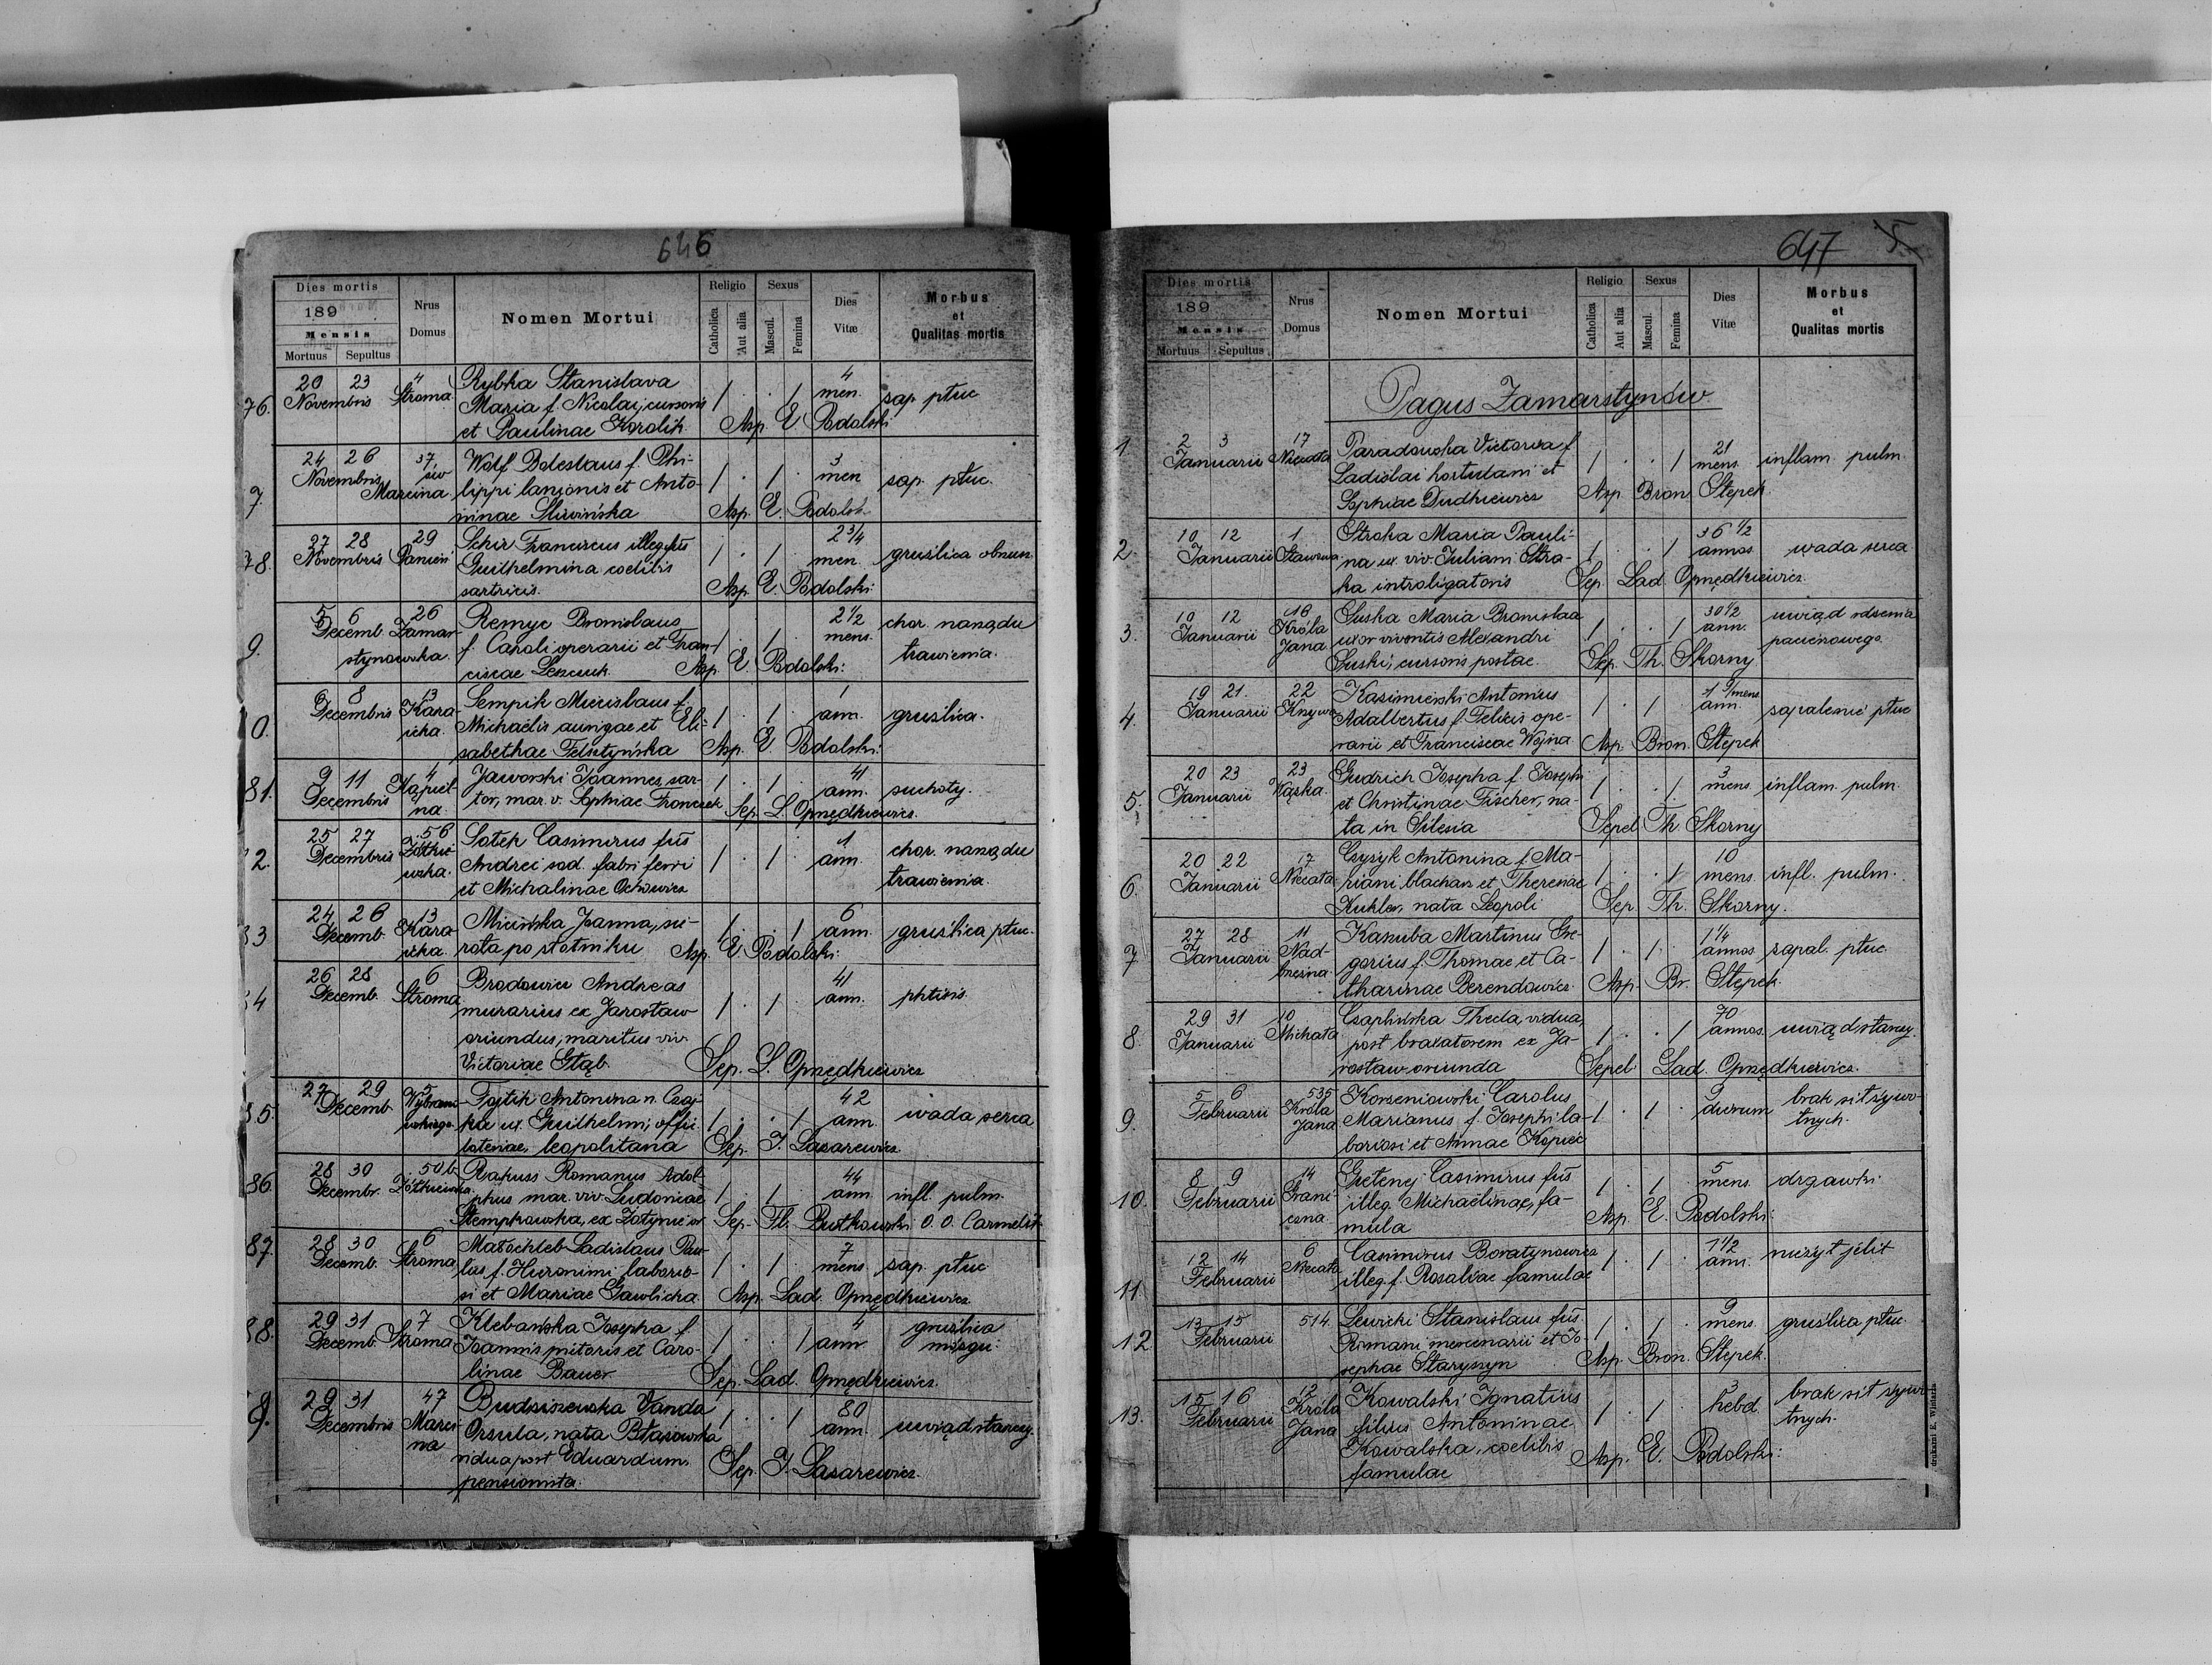 646
Dies mortis
189
Mensis
Mortuus Sepultus
Nrus
Domus
Nomen Mortui
Religio
Catholica
Aut alia
Sexus
Mascul.
Femina
Dies
Vitæ
Morbus
et
Qualitas mortis
76. 20 23 4 Rybka Stanislava 4
Novembris Stroma Maria f. Nicolai, cursoris 1 . . 1 men. zap. płuc
et Paulinae Karolik Asp. E. Podolski
7. 24 26 37 Wolf Boleslaus f. Phi- 3
Novembris św lippi lanionis et Anto- 1 . 1 . men zap. płuc.
Marcina ninae Śliwińska Asp. E. Podolsk
78. 27 28 29 Schir Franciscus illeg. fus 2 3/4
Novembris Panień Guilhelmina coelibis 1 . 1 men. gruźlica
sartricis. Asp. E. Podolski
9. 5 6 26 Remyc Bronislaus 2 1/2 chor. narządu
Decemb. Zamar- f. Caroli operarii et Fran- 1 . 1 mens. trawienia.
stynowska. ciscae Asp. E. Podolski
0. 6 8 13 Sempik Miecislaus f. 1
Decembris Kara- Michaelis aurigae et Eli- 1 . 1 . ann. gruźlica.
icka. sabethae Felsztyńska Asp. E. Podolski
81. 9 11 4 Jaworski Joannes, sar- 41
Decembris Kąpiel- tor, mar. v. Sophiae Fronczek 1 . 1 . ann. suchoty.
na. Sep. L. Opnędkiewicz.
2. 25 27 56 Sotek Casimirus fus 1 chor. narządu
Decembris Żółkie- Andrei sod. fabri ferri 1 . 1 . ann. trawienia.
wska. et Michalinae Ochowicz
3 24 26 13 Micińska Joanna, sie- 6
Decemb. Kara- rota po stotniku 1 . . 1 ann. gruźlica płuc.
icka. Asp. E. Podolski
4 26 28 6 Brodowicz Andreas 41
Decemb. Stroma murarius ex Jarosław 1 . 1 . ann. phtisis.
oriundus, maritus viv.
Victoriae Głąb Sep. L. Opnędkiewicz
5. 27 29 5 Fojtik Antonina n. Czaj- 42
Decemb. ka ux. Guilhelmi, offi- 1 . . 1 ann. wada serca
leopolitana Sep. J. Łazarewicz
86 28 30 50b Rakuss Romanus Adol- 44
Decembr. Żółkiewska. phus mar. viv. Ludovicae 1 1 ann. infl. pulm.
Stempkowska, ex Sep. Fl. Butkowski O. O. Carmelit.
87. 28 30 6 Marochleb Ladislaus Pau- 7
Decemb. Stroma lus f. Hieronimi laborio- 1 . 1 . mens. zap. płuc
si et Mariae Gawlicka Asp. Lad. Opnędkiewicz.
88. 29 31 7 Klebańska Josepha f. 4 gruźlica
Decemb. Stroma Joannis pictoris et Caro- 1 . 1 ann mózgu.
linae Bauer Sep. Lad. Opnędkiewicz.
9. 29 31 47 Budziszewska Vanda 80
Decembris Marci- Orsula, nata Błażowska 1 . . 1 ann. uwiąd starczy.
na vidua post Eduardum,
pensionista. Sep. J. Łazarewicz.
647 5
Dies mortis
189
Mensis
Mortuus Sepultus
Nrus
Domus
Nomen Mortui
Religio
Catholica
Aut alia
Sexus
Mascul.
Femina
Dies
Vitæ
Morbus
et
Qualitas mortis
Pagus Zamarstynów
1 2 3 17 Paradowska Victoria f. 21
Januarii Niecała Ladislai hortulani et 1 . . 1 mens. inflam. pulm.
Sophiae Dudkiewicz Asp. Bron. Stepek
2. 10 12 1 Straka Maria Pauli- 36 1/2
Januarii Stawowa na ux. viv. Juliani Stra- 1 . . 1 annos wada serca
ka introligatoris Sep. Lad. Opnędkiewicz.
3. 10 12 18 Suska Maria Bronislaa 30 1/2 uwiąd rdzenia
Januarii Króla uxor viventis Alexandri 1 . . 1 ann. pacierzowego.
Jana Suski, cursoris postae. Sep. Th. Skorny
4. 19 21. 22 Kazimierski Antonius 1 9/mens
Januarii Krzywa Adalbertus f. Felicis ope- 1 . 1 . ann. zapalenie płuc
rarii et Franciscae Wojna Asp. Bron. Stepek
5. 20 23 23 Gudrich Josepha f. Josephi 3
Januarii Wąska. et Christinae Fischer, na- 1 . . 1. mens. inflam. pulm.
ta in Silesia Sepel. Th. Skorny
6. 20 22 17 Czyzyk Antonina f. Ma- 10
Januarii Niecała riani blachar. et Theresiae 1 . . 1 mens. infl. pulm.
Kukler, nata Leopoli Sep. Th. Skorny.
7 27 28 11 Kanuba Martinus Gre- 1 1/4
Januarii Nad- gorius f. Thomae et Ca- 1 . 1 . annos zapal. płuc
brzeżna. tharinae Berendowicz. Asp. Br. Stepek.
8. 29 31 10 Czaplińska Thecla, vidua, 70
Januarii Michała post braxatorem ex Ja- 1 . . 1 annos. uwiąd starczy.
rosław oriunda Sepel. Lad. Opnędkiewicz.
9. 5 6 535 Korzeniowski Carolus 9 brak sił żywo-
Februarii Króla Marianus f. Josephi la- 1 . 1 . dierum tnych.
Jana boriosi et Annae Kopieć
10. 8 9 14 Gretenej Casimirus fus 5
Februarii illeg. Michaëlinae, fa- 1 . 1 . mens. drgawki
mula Asp. E. Podolski
11. 12 14 6 Casimirus Boratynowicz 1 1/2
Februarii Niecała illeg. f. Rosaliae famulae 1 . 1 . ann. nieżyt jelit
12. 13 15 514. Lewicki Stanislaus fus. 9
Februarii Romani mercenarii et Jo- 1 . 1 . mens. gruźlica płuc.
sephae Staryszyn Asp. Bron. Stepek.
13. 15 16 12 Kowalski Ignatius 3 brak sił żywo
Februarii Króla filius Antoninae 1 . 1 . hebd. tnych.
Jana Kowalska, coelibis
famulae Asp. E. Podolski
drukarni E. Winiarza